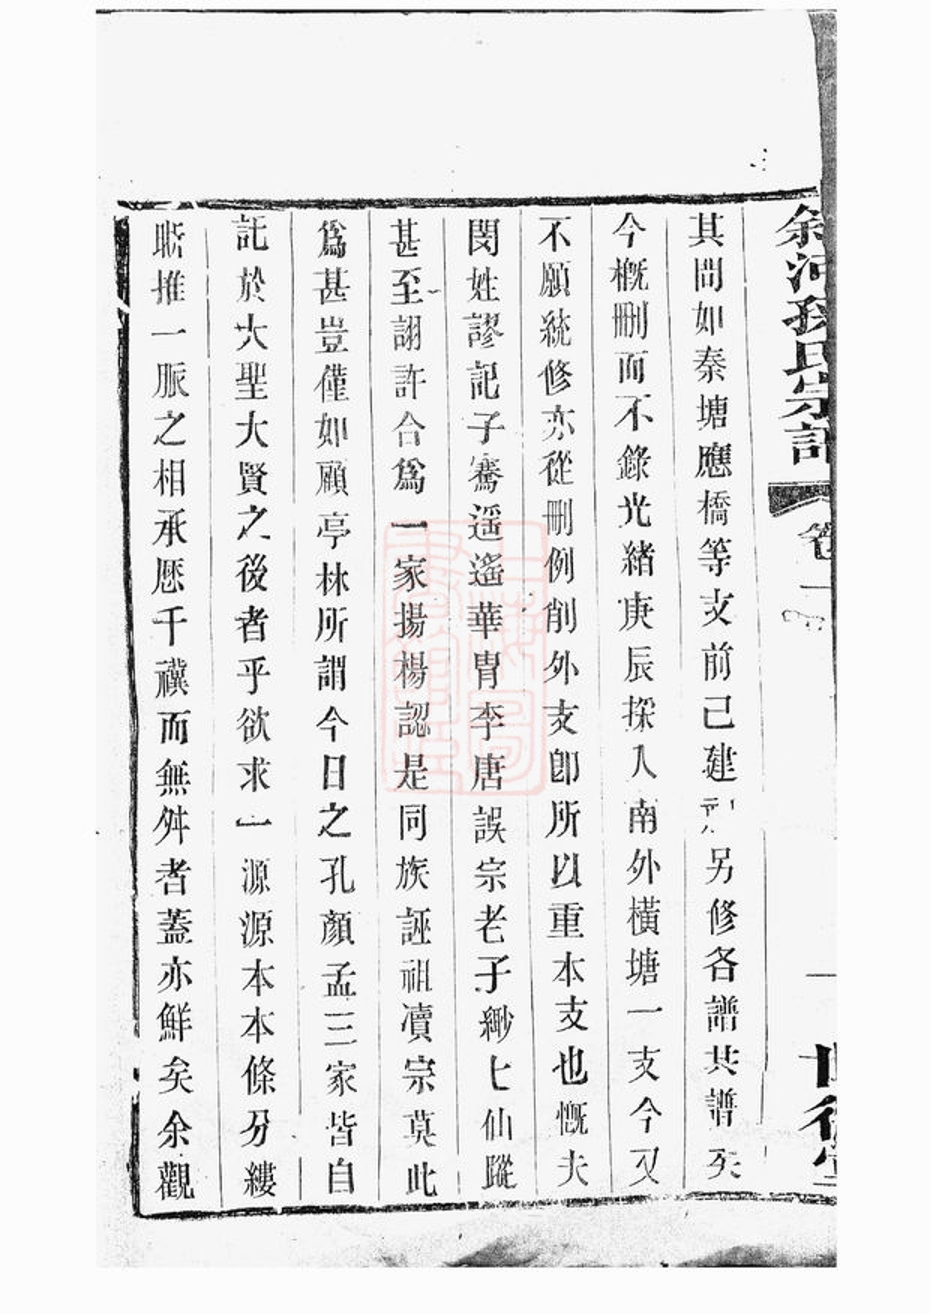 余河孫氏宗譜 卷一 世德堂
其間如秦塘應橋等支前已建 另修各譜共譜矣
今概刪而不錄光緒庚辰採入南外橫塘一支今又
不願統修亦從刪例削外支卽所以重本支也慨夫
閔姓謬記子騫遥遙華胄李唐誤宗老子緲七仙蹤
甚至詡許合爲一家揚楊認是同族誣祖瀆宗莫此
爲甚豈僅如顧亭林所謂今日之孔顏孟三家皆自
託於大聖大賢之後者乎欲求一源源本本條分縷
晣推一脈之相承歷千禩而無舛者蓋亦鮮矣余觀